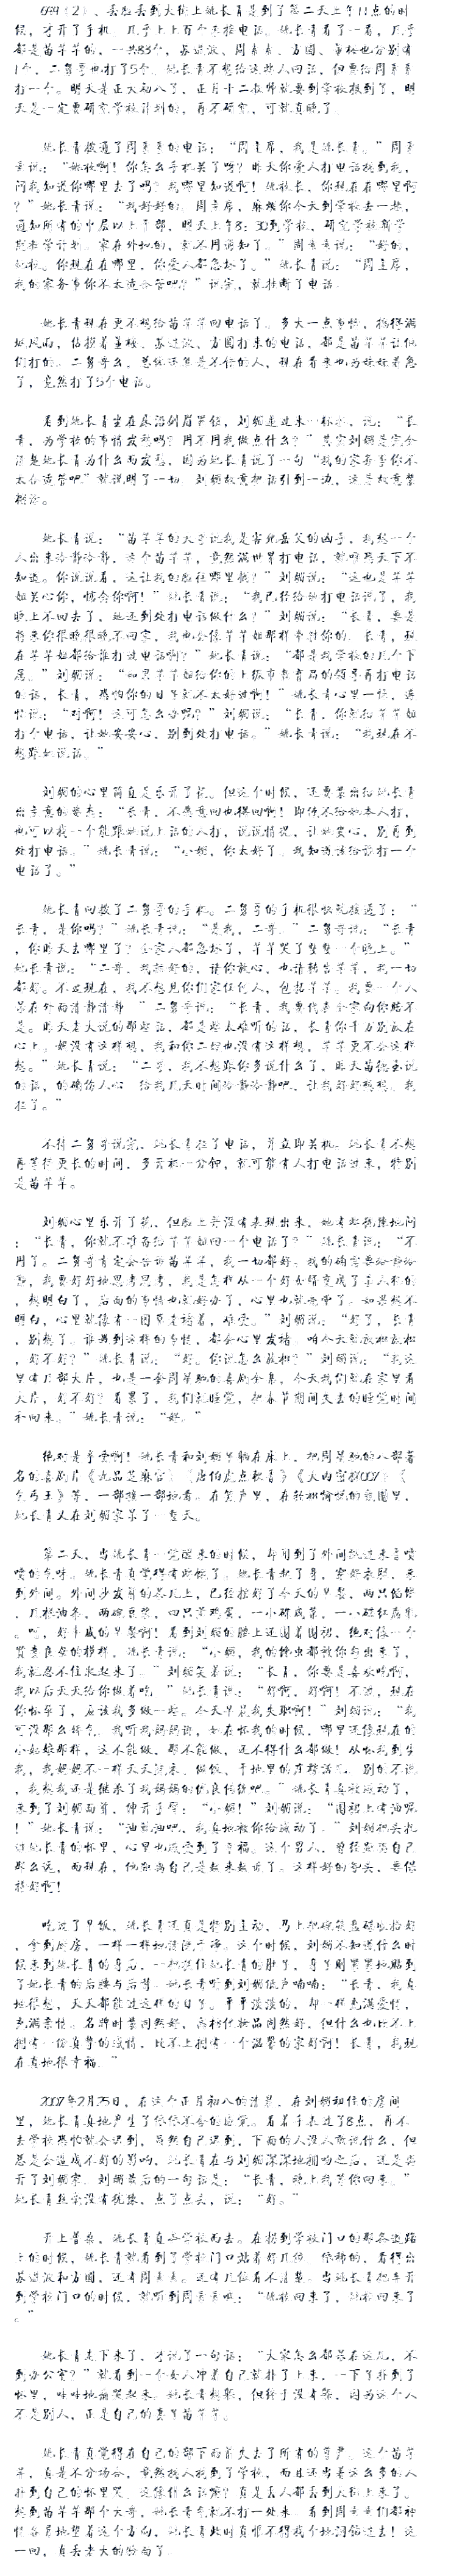 699（2）、丢脸丢到大街上姚长青是到了第二天上午11点的时
候，才开了手机。几乎上百个未接电话。姚长青看了一看，几乎
都是苗芊芊的，一共83个，苏进波、周素素、方圆、董核也分别有
1个，二舅哥也打了5个。姚长青不想给这些人回话，但要给周素素
打一个。明天是正大初八了，正月十二教师就要到学校报到了，明
天是一定要研究学校计划的，再不研究，可就真晚了。
姚长青拨通了周素素的电话：“周主席，我是姚长青。”周素
素说：“姚校啊！你怎么手机关了呀？昨天你爱人打电话找到我，
问我知道你哪里去了吗？我哪里知道啊！姚校长，你现在在哪里啊
？”姚长青说：“我好好的，周主席，麻烦你今天到学校去一趟，
通知所有的中层以上干部，明天上午8：30到学校，研究学校新学
期开学计划。家在外地的，就不用通知了。”周素素说：“好的，
姚校。你现在在哪里，你爱人都急坏了。”姚长青说：“周主席，
我的家务事你不太适合管吧？”说完，就挂断了电话。
姚长青现在更不想给苗芊芊回电话了。多大一点事情，搞得满
城风雨，估摸着董核、苏进波、方圆打来的电话，都是苗芊芊让他
们打的。二舅哥么，总归还算是不错的人，现在看来也为妹妹着急
了，竟然打了5个电话。
看到姚长青坐在床沿剑眉紧锁，刘嫻递过来一杯水，说：“长
青，为学校的事情发愁吗？用不用我做点什么？”其实刘嫻是完全
清楚姚长青为什么而发愁，因为姚长青说了一句“我的家务事你不
太合适管吧”就说明了一切。刘嫻故意把话引到一边，这是故意装
糊涂。
姚长青说：“苗芊芊的大哥说我是害死岳父的凶手，我想一个
人出来冷静冷静，这个苗芊芊，竟然满世界打电话，就唯恐天下不
知道。你说说看，这让我的脸往哪里搁？”刘嫻说：“这也是芊芊
姐关心你，惦念你啊！”姚长青说：“我已经给她打电话说了，我
晚上不回去了，她还到处打电话做什么？”刘嫻说：“长青，要是
将来你很晚很晚不回家，我也会像芊芊姐那样牵挂你的。长青，现
在芊芊姐都给谁打过电话啊？”姚长青说：“都是我学校的几个下
属。”刘嫻说：“如果芊芊姐给你的上级市教育局的领导再打电话
的话，长青，恐怕你的日子就不太好过啊！”姚长青心里一惊，连
忙说：“对啊！这可怎么办呢？”刘嫻说：“长青，你就给芊芊姐
打个电话，让她安安心，别到处打电话。”姚长青说：“我现在不
想跟她说话。”
刘嫻的心里简直是乐开了花。但这个时候，还要装出给姚长青
出主意的姿态：“长青，不愿意回也得回啊！即使不给她本人打，
也可以找一个能跟她说上话的人打，说说情况，让她安心，别再到
处打电话。”姚长青说：“小嫻，你太好了。我知道该给谁打一个
电话了。”
姚长青回拨了二舅哥的手机。二舅哥的手机很快就接通了：“
长青，是你吗？”姚长青说：“是我，二哥。”二舅哥说：“长青
，你昨天去哪里了？全家人都急坏了，芊芊哭了整整一个晚上。”
姚长青说：“二哥，我挺好的，请你放心，也请转告芊芊，我一切
都好。不过现在，我不想见你们家任何人，包括芊芊。我要一个人
呆在外面清静清静。”二舅哥说：“长青，我要代表全家向你赔不
是。昨天老大说的那些话，都是些太难听的话，长青你千万别放在
心上，妈没有这样想，我和你二嫂也没有这样想，芊芊更不会这样
想。”姚长青说：“二哥，我不想跟你多说什么了，昨天苗抱玉说
的话，的确伤人心。给我几天时间冷静冷静吧，让我好好想想。我
挂了。”
不待二舅哥说完，姚长青挂了电话，并立即关机。姚长青不想
再等待更长的时间，多开机一分钟，就可能有人打电话过来，特别
是苗芊芊。
刘嫻心里乐开了花，但脸上却没有表现出来，她有些犹豫地问
：“长青，你就不准备给芊芊姐回一个电话了？”姚长青说：“不
用了。二舅哥肯定会告诉苗芊芊，我一切都好。我的确需要冷静冷
静，我要好好地思考思考，我是怎样从一个好女婿变成了杀人犯的
，想明白了，后面的事情也就好办了，心里也就亮堂了。如果想不
明白，心里就像有一团草老堵着，难受。”刘嫻说：“好了，长青
，别想了。谁遇到这样的事情，都会心里发堵。咱今天就放松放松
，好不好？”姚长青说：“好。你说怎么放松？”刘嫻说：“我这
里有几部大片，也是一套周星驰的喜剧全集，今天我们就在家里看
大片，好不好？看累了，我们就睡觉，把春节期间失去的睡觉时间
补回来。”姚长青说：“好。”
绝对是享受啊！姚长青和刘嫻早躺在床上，把周星驰的八部著
名的喜剧片《九品芝麻官》《唐伯虎点秋香》《大内密探007》《
乞丐王》等，一部接一部地看。在笑声里，在轻松愉悦的氛围里，
姚长青又在刘嫻家呆了一整天。
第二天，当姚长青一觉醒来的时候，却闻到了外间飘过来香喷
喷的气味。姚长青真觉得有些饿了。姚长青起了身，穿好衣服，来
到外间。外间沙发前的茶几上，已经摆好了今天的早餐，两只馅饼
，几根油条，两碗豆浆，四只茶鸡蛋，一小碟咸菜，一小碟红腐乳
。呵，好丰盛的早餐啊！看到刘嫻的腰上还围着围裙，绝对像一个
贤妻良母的模样，姚长青说：“小嫻，我的馋虫都被你勾出来了，
我就忍不住爬起来了。”刘嫻笑着说：“长青，你要是喜欢吃啊，
我以后天天给你做着吃。”姚长青说：“好啊，好啊！不过，现在
你怀孕了，应该我多做一些。今天早晨我失职啊！”刘嫻说：“我
可没那么娇气。我听我妈妈讲，女在怀我的时候，哪里还像现在的
小媳妇那样，这不能做，那不能做，还不得什么都做！从怀我到生
我，我妈妈不一样天天洗衣、做饭、干地里的庄稼活儿。别的不说
，我想我还是继承了我妈妈的优良传统吧。”姚长青真被感动了，
来到了刘嫻面前，伸开了臂：“小嫻！”刘嫻说：“围裙上有油呢
！”姚长青说：“油就油吧，我真地被你给感动了。”刘嫻把头扎
进姚长青的怀里，心里也感受到了幸福。这个男人，曾经距离自己
那么远，而现在，他距离自己是越来越近了。这样好的势头，要保
持好啊！
吃过了早饭，姚长青还真是特别主动，马上把碗筷盘碟收拾好
，拿到厨房，一样一样地清洗干净。这个时候，刘嫻不知道什么时
候来到姚长青的身后，一把抱住姚长青的肚子，身子则紧紧地贴到
了姚长青的后腰与后背。姚长青听到刘嫻低声喃喃：“长青，我真
地很想，天天都能过这样的日子。平平淡淡的，却一样充满爱情，
充满亲情。名牌时装固然好，高档化妆品固然好，但什么也比不上
拥有一份真挚的感情，比不上拥有一个温馨的家好啊！长青，我现
在真地很幸福。”
2007年2月25日，在这个正月初八的清晨，在刘嫻租住的房间
里，姚长青真地产生了依依不舍的感觉。看看手表过了8点，再不
去学校恐怕就会迟到，虽然自己迟到，下面的人没人敢说什么，但
总是会造成不好的影响，姚长青在与刘嫻深深地拥吻之后，还是离
开了刘嫻家。刘嫻最后的一句话是：“长青，晚上我等你回来。”
姚长青丝毫没有犹豫，点了点头，说：“好。”
开上普桑，姚长青直奔学校而去。在拐到学校门口的那条道路
上的时候，姚长青就看到了学校门口站着好几位，依稀的，看得出
苏进波和方圆，还有周素素。还有几位看不清楚。当姚长青把车开
到学校门口的时候，就听到周素素喊：“姚校回来了，姚校回来了
。”
姚长青走下来了，才说了一句话：“大家怎么都呆在这儿，不
到办公室？”就看到一个女人冲着自己就扑了上来，一下子扑到了
怀里，哇哇地痛哭起来。姚长青想躲，但终于没有躲，因为这个人
不是别人，正是自己的妻子苗芊芊。
姚长青真觉得在自己的部下面前失去了所有的尊严。这个苗芊
芊，真是不分场合，竟然找人找到了学校，而且还当着这么多的人
扑到自己的怀里哭，这像什么话啊？真是丢人都丢到大街上来了。
想到苗芊芊那个大哥，姚长青气就不打一处来。看到周素素们都神
情各异地望着这个方向，姚长青此时真恨不得找个地洞钻过去！这
一回，真丢老大的份为了。